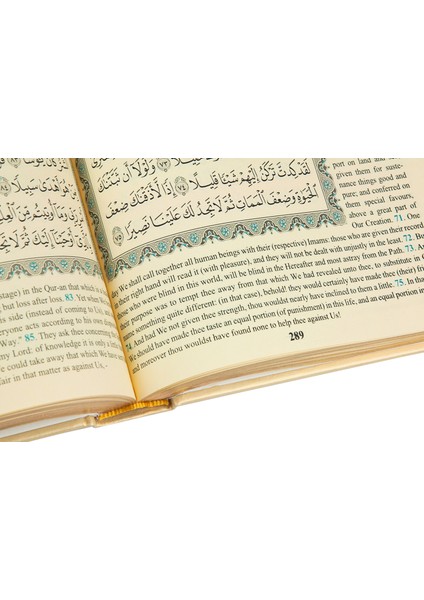 يَئُوسًا
هُوَ أَهْدَىٰ سَبِيلًا ٨٤
وَمَا أُوتِيتُم مِّنَ الْعِلْ
أَوْحَيْنَا إِلَيْكَ ثُمَّ لَا تَجِ
stage) in the Qur-an that which is a
but loss after loss. 83. Yet when We
es side (instead of coming to Us, and
everyone acts according to his own dis
Way." 85. They ask thee concerning
my Lord: of knowledge it is only a l
e could take away that which We have
air in that matter as against Us,-
خَلِيلًا ٧٣ وَلَوْلَا أَن ثَبَّتْنَاكَ
لَقَدْ كِدتَّ تَرْكَنُ إِلَيْهِمْ شَيْئًا قَلِيلًا ٧٤ إِذًا لَّأَذَقْنَاكَ ضِعْفَ
الْحَيَوٰةِ وَضِعْفَ الْمَمَاتِ ثُمَّ لَا تَجِدُ لَكَ عَلَيْنَا نَصِيرًا ٧٥
port on land and
given them for suste-
nance things good and
pure; and conferred on
them special favours,
above a great part of
Our Creation. 71. One
day We shall call together all human beings with their (respective) Imams: those who are given their record
in their right hand will read it (with pleasure), and they will not be dealt with unjustly in the least. 72. But
those who were blind in this world, will be blind in the Hereafter and most astray from the Path. 73. And
their purpose was to tempt thee away from that which We had revealed unto thee, to substitute in Our
something quite different: (in that case), behold! they would certainly have made thee (their) friend!
74. And had We not given thee strength, thou wouldst nearly have inclined to them a little. 75. In that case
We should have made thee taste an equal portion (of punishment) in this life, and an equal portion in
and moreover thou wouldst have found none to help thee against Us!
289